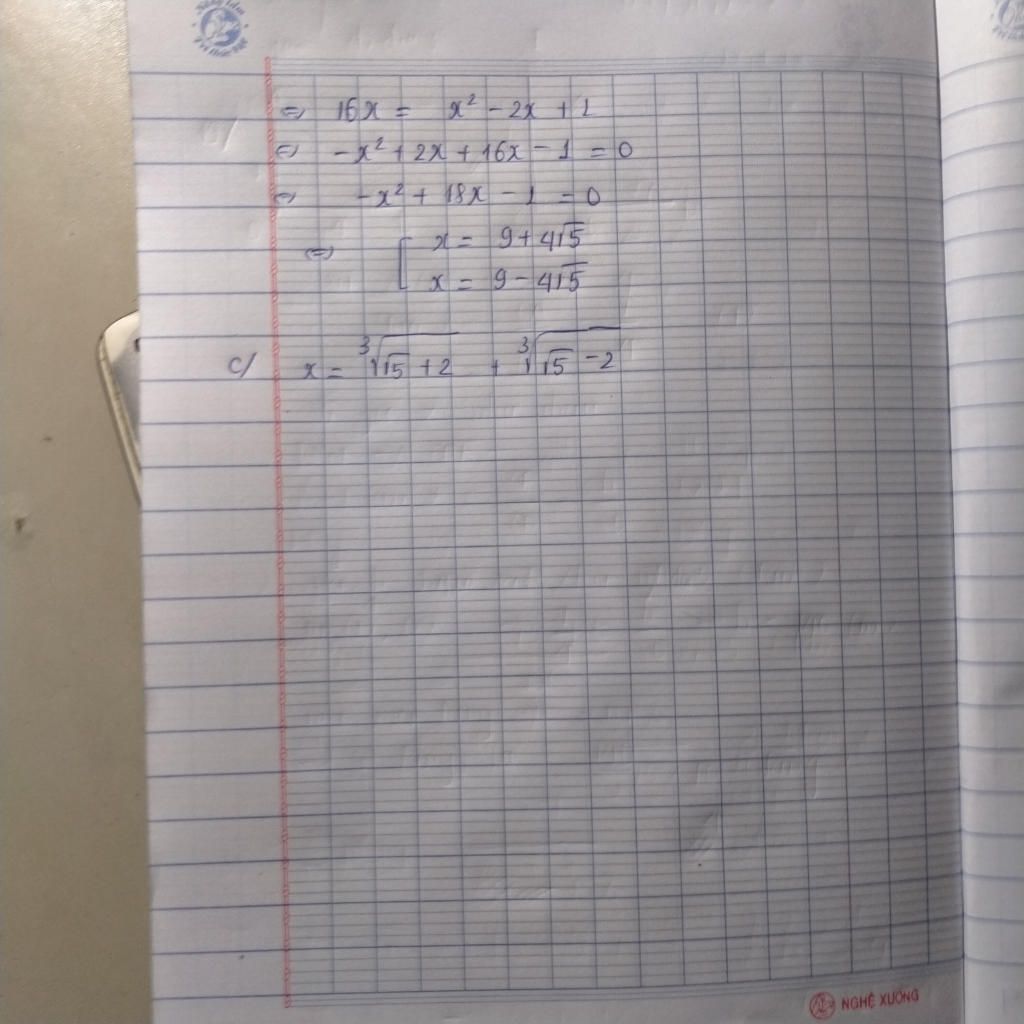 ⇔ 16x = x² - 2x + 1
⇔ -x² + 2x + 16x - 1 = 0
⇔ -x² + 18x - 1 = 0
⇔ [ x = 9 + 4√5
x = 9 - 4√5
c/ x = ∛(√5 + 2) + ∛(√5 - 2)
NGHỆ XƯỞNG